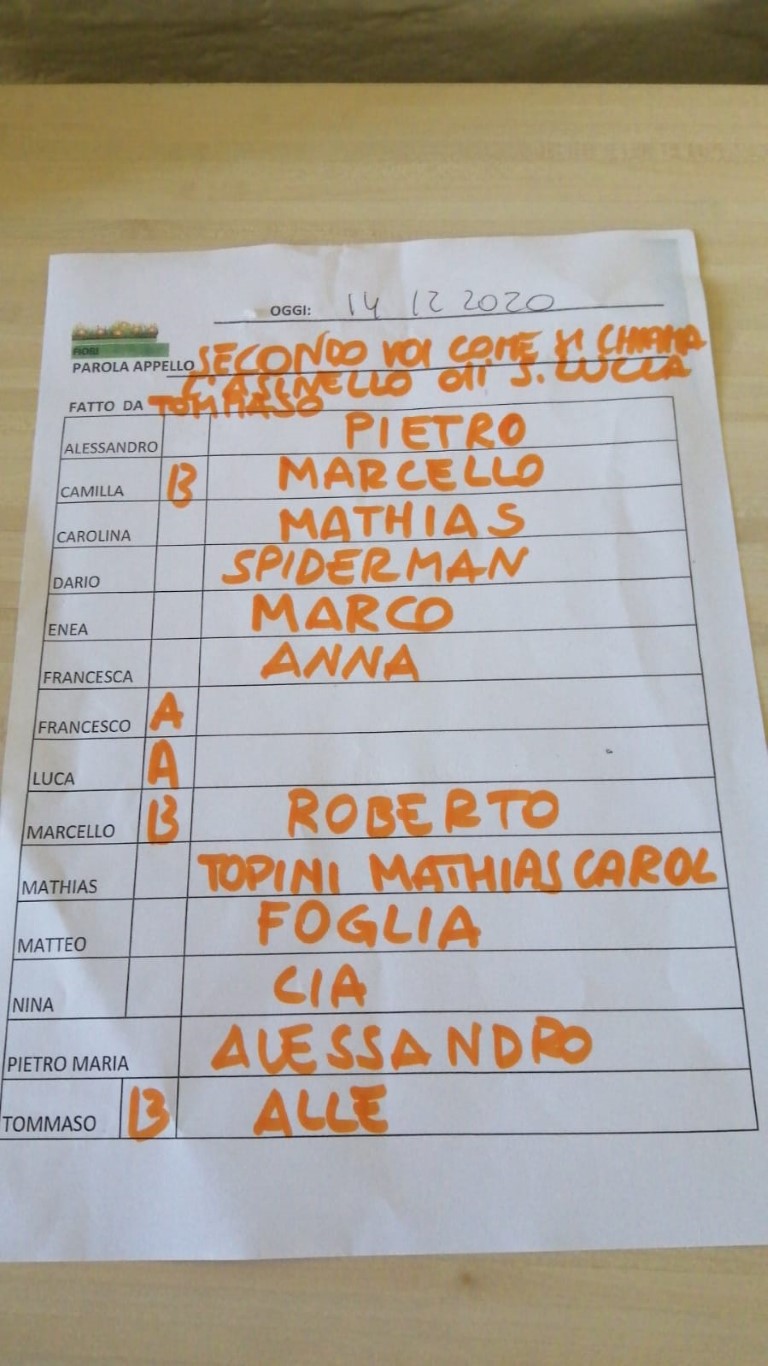 OGGI: 14 12 2020
FIORI
PAROLA APPELLO SECONDO VOI COME SI CHIAMA
L'ASINELLO DI S. LUCIA
FATTO DA TOMMASO
ALESSANDRO PIETRO
CAMILLA B MARCELLO
CAROLINA MATHIAS
DARIO SPIDERMAN
ENEA MARCO
FRANCESCA ANNA
FRANCESCO A
LUCA A
MARCELLO B ROBERTO
MATHIAS TOPINI MATHIAS CAROL
MATTEO FOGLIA
NINA CIA
PIETRO MARIA ALESSANDRO
TOMMASO B ALLE